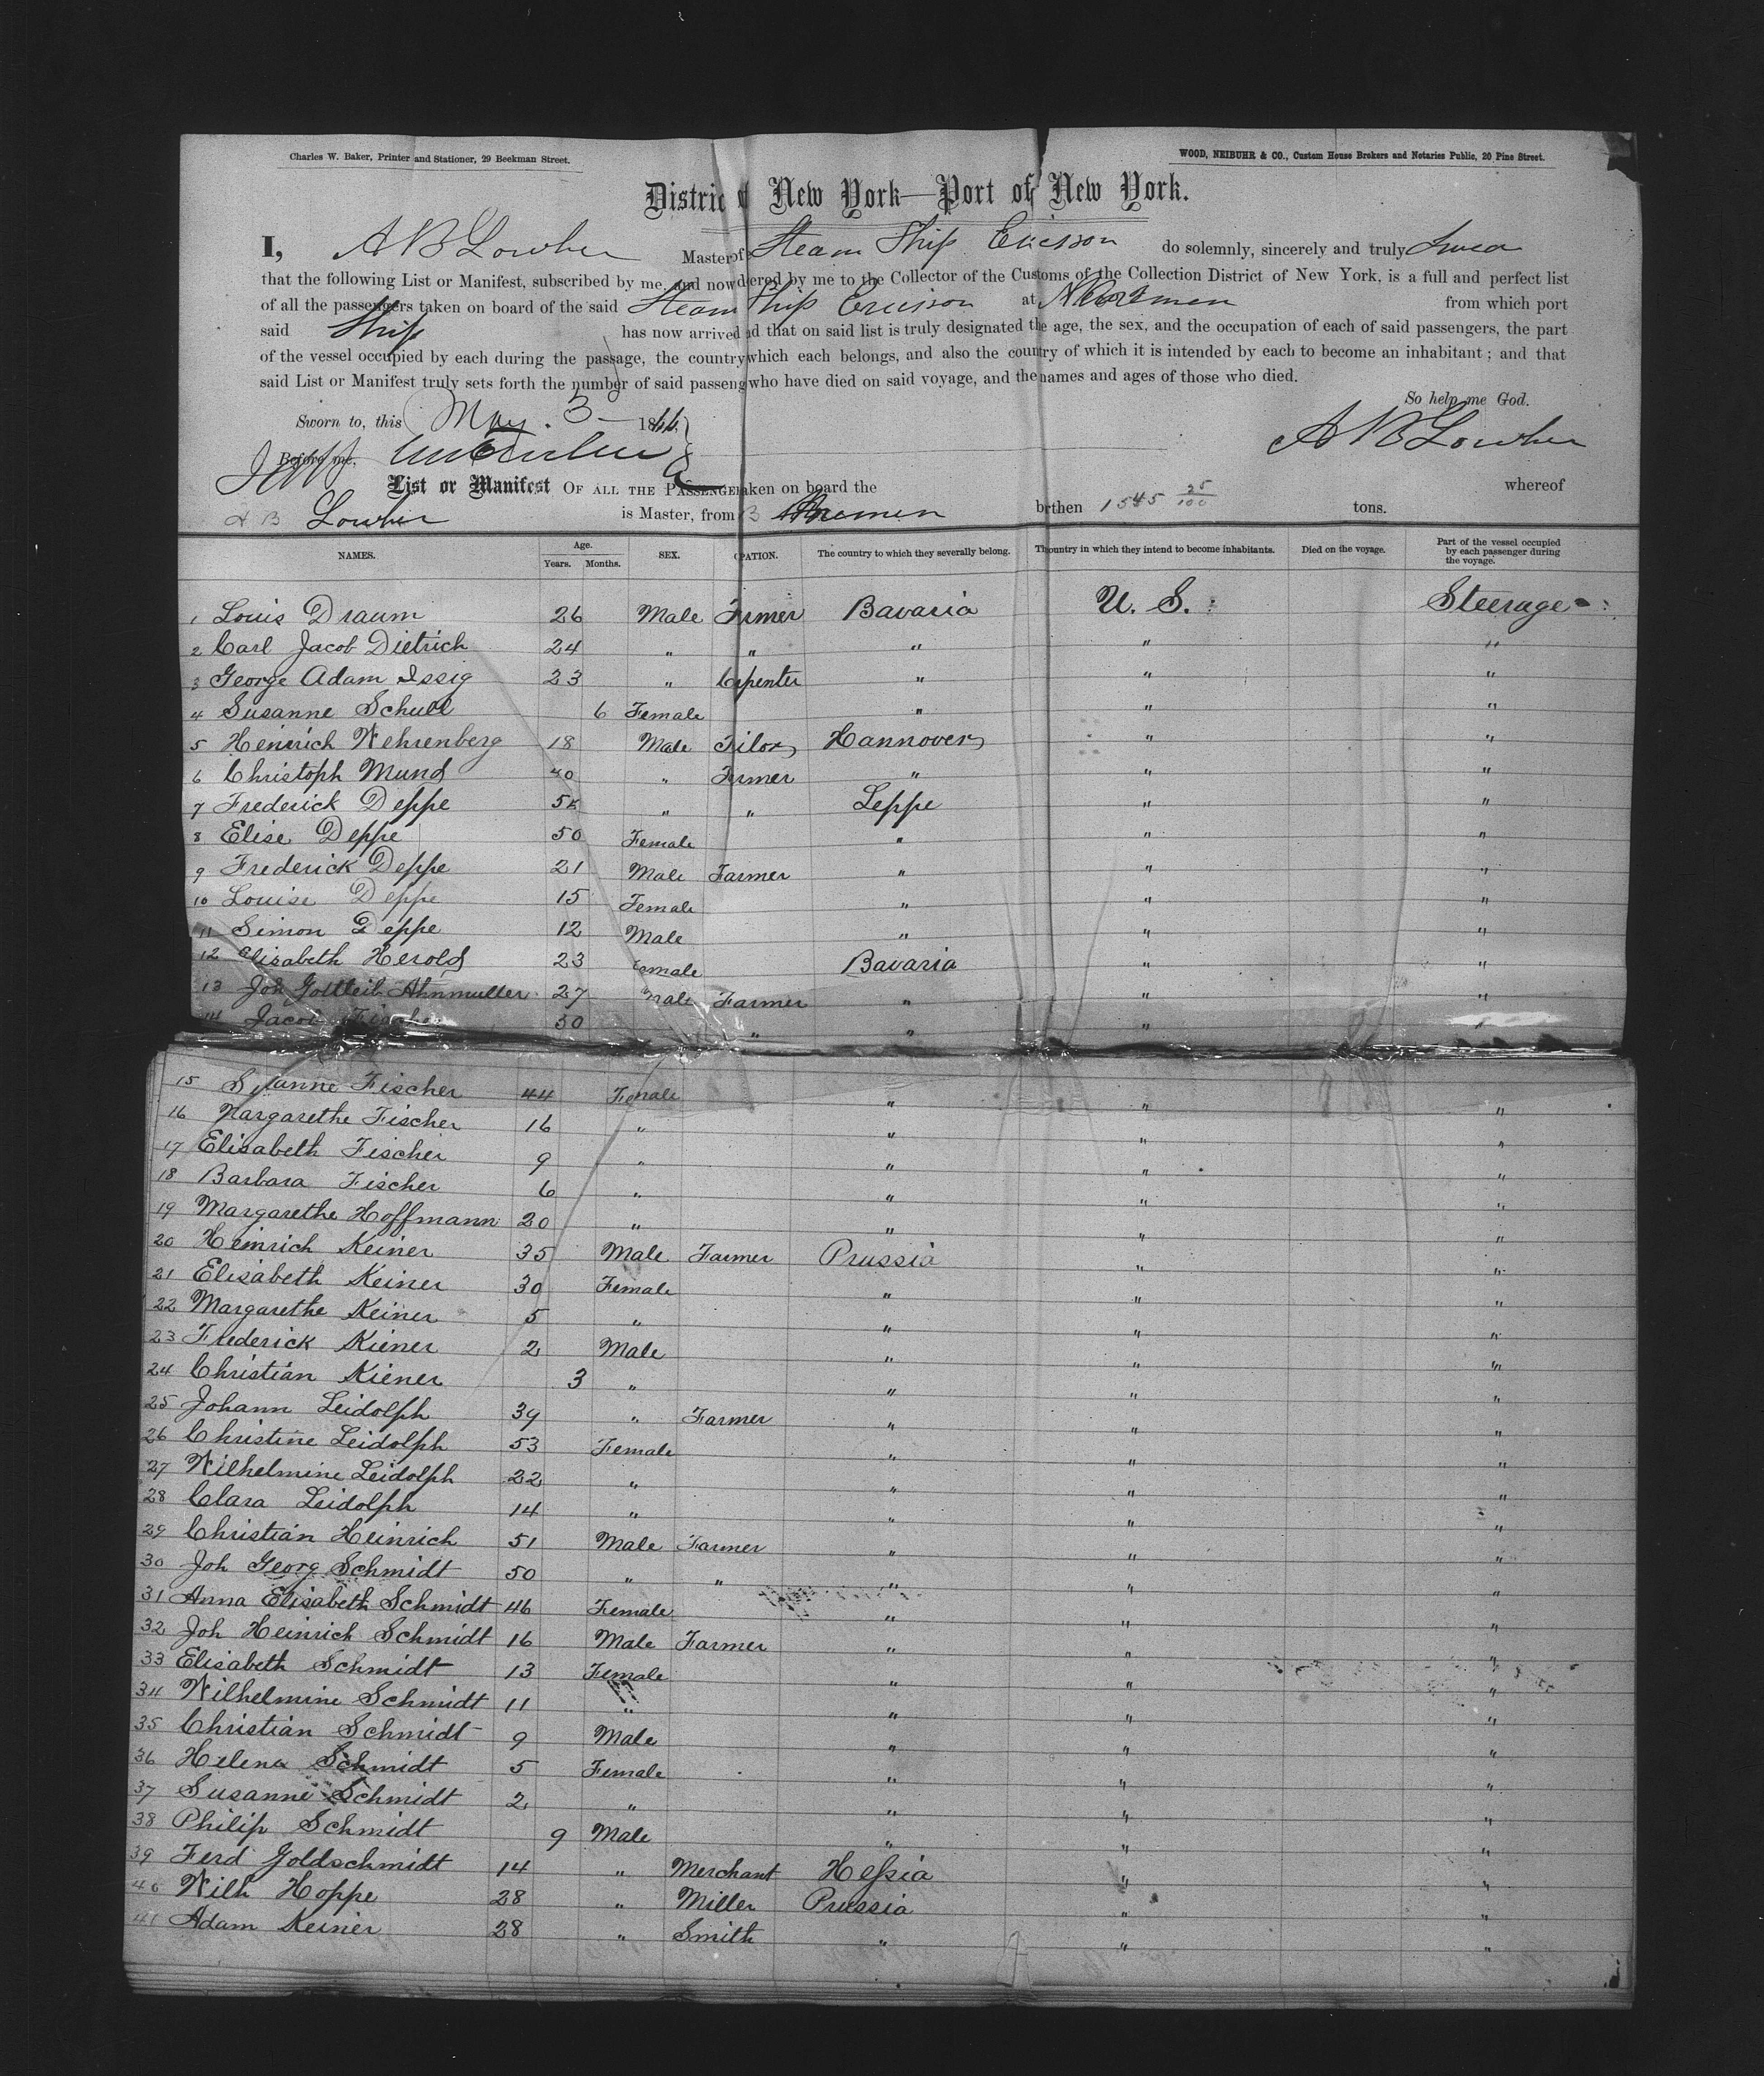 Charles W. Baker, Printer and Stationer, 29 Beekman Street.
WOOD, NEIBUHR & CO., Custom House Brokers and Notaries Public, 20 Pine Street.
Distric New York—Port of New York.
I, A B Lowber Master of Steam Ship Ericsson do solemnly, sincerely and truly Swear
that the following List or Manifest, subscribed by me, and now dered by me to the Collector of the Customs of the Collection District of New York, is a full and perfect list
of all the passengers taken on board of the said Steam Ship Ericsson at from which port
said Ship has now arrived d that on said list is truly designated the age, the sex, and the occupation of each of said passengers, the part
of the vessel occupied by each during the passage, the country which each belongs, and also the country of which it is intended by each to become an inhabitant; and that
said List or Manifest truly sets forth the number of said passeng who have died on said voyage, and the names and ages of those who died.
So help me God.
Sworn to, this May. 3 1866 A B Lowber
Before me,
List or Manifest OF ALL THE PASSENGE aken on board the whereof
A B Lowber is Master, from Bremen b rthen 1545 25/100 tons.
NAMES. Age. Years. Months. SEX. PATION. The country to which they severally belong. Th ountry in which they intend to become inhabitants. Died on the voyage. Part of the vessel occupied by each passenger during the voyage.
1 Louis Draum 26 Male Frmer Bavaria U. S. Steerage
2 Carl Jacob Dietrich 24 " " " " "
3 George Adam Issig 23 " Crpenter " " "
4 Susanne Schull 6 Female " " "
5 Heinrich Wehrenberg 18 Male Tilor Hannover " "
6 Christoph Mund 40 " Frmer " " "
7 Frederick Deppe " " Leppe " "
8 Elise Deppe 50 Female " " "
9 Frederick Deppe 21 Male Farmer " " "
10 Louise Deppe 15 Female " " "
11 Simon Deppe 12 Male " " "
12 Elisabeth Herold 23 emale Bavaria " "
13 Joh Gottleib Ahnmuller 27 Male Farmer " " "
14 Jacob Fischer 50 " " " "
15 Susanne Fischer 44 Female " " "
16 Margarethe Fischer 16 " " " "
17 Elisabeth Fischer 9 " " " "
18 Barbara Fischer 6 " " " "
19 Margarethe Hoffmann 20 " " " "
20 Heinrich Keiner 35 Male Farmer Prussia " "
21 Elisabeth Keiner 30 Female " " "
22 Margarethe Keiner 5 " " " "
23 Frederick Kiener 2 Male " " "
24 Christian Kiener 3 " " " "
25 Johann Leidolph 39 " Farmer " " "
26 Christine Leidolph 53 Female " " "
27 Wilhelmine Leidolph 22 " " " "
28 Clara Leidolph 14 " " " "
29 Christian Heinrich 51 Male Farmer " " "
30 Joh Georg Schmidt 50 " " " " "
31 Anna Elisabeth Schmidt 46 Female " " "
32 Joh Heinrich Schmidt 16 Male Farmer " " "
33 Elisabeth Schmidt 13 Female " " "
34 Wilhelmine Schmidt 11 " " " "
35 Christian Schmidt 9 Male " " "
36 Helena Schmidt 5 Female " " "
37 Susanne Schmidt 2 " " " "
38 Philip Schmidt 9 Male " " "
39 Ferd Goldschmidt 14 " Merchant Hessia " "
40 Wilh Hoppe 28 " Miller Prussia " "
41 Adam Keiner 28 " Smith " " "